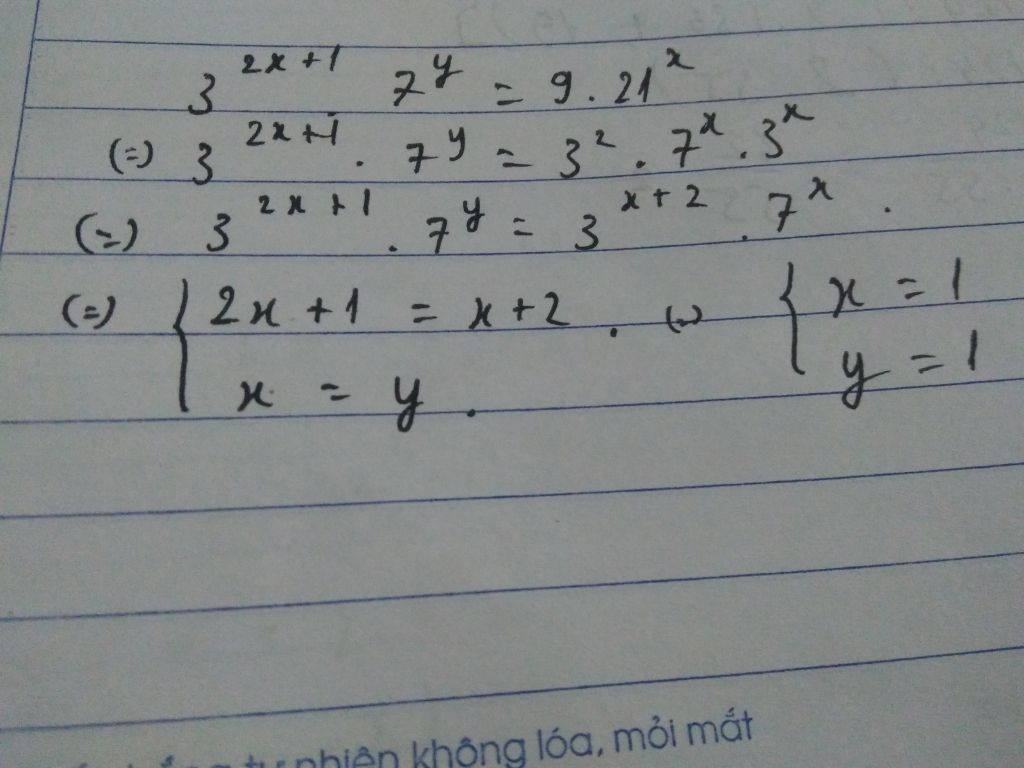 3^{2x+1} 7^y = 9 . 21^x
(=) 3^{2x+1} . 7^y = 3^2 . 7^x . 3^x
(=) 3^{2x+1} . 7^y = 3^{x+2} . 7^x .
(=) { 2x + 1 = x + 2 . (=) { x = 1
x = y . y = 1
tự nhiên không lóa, mỏi mắt